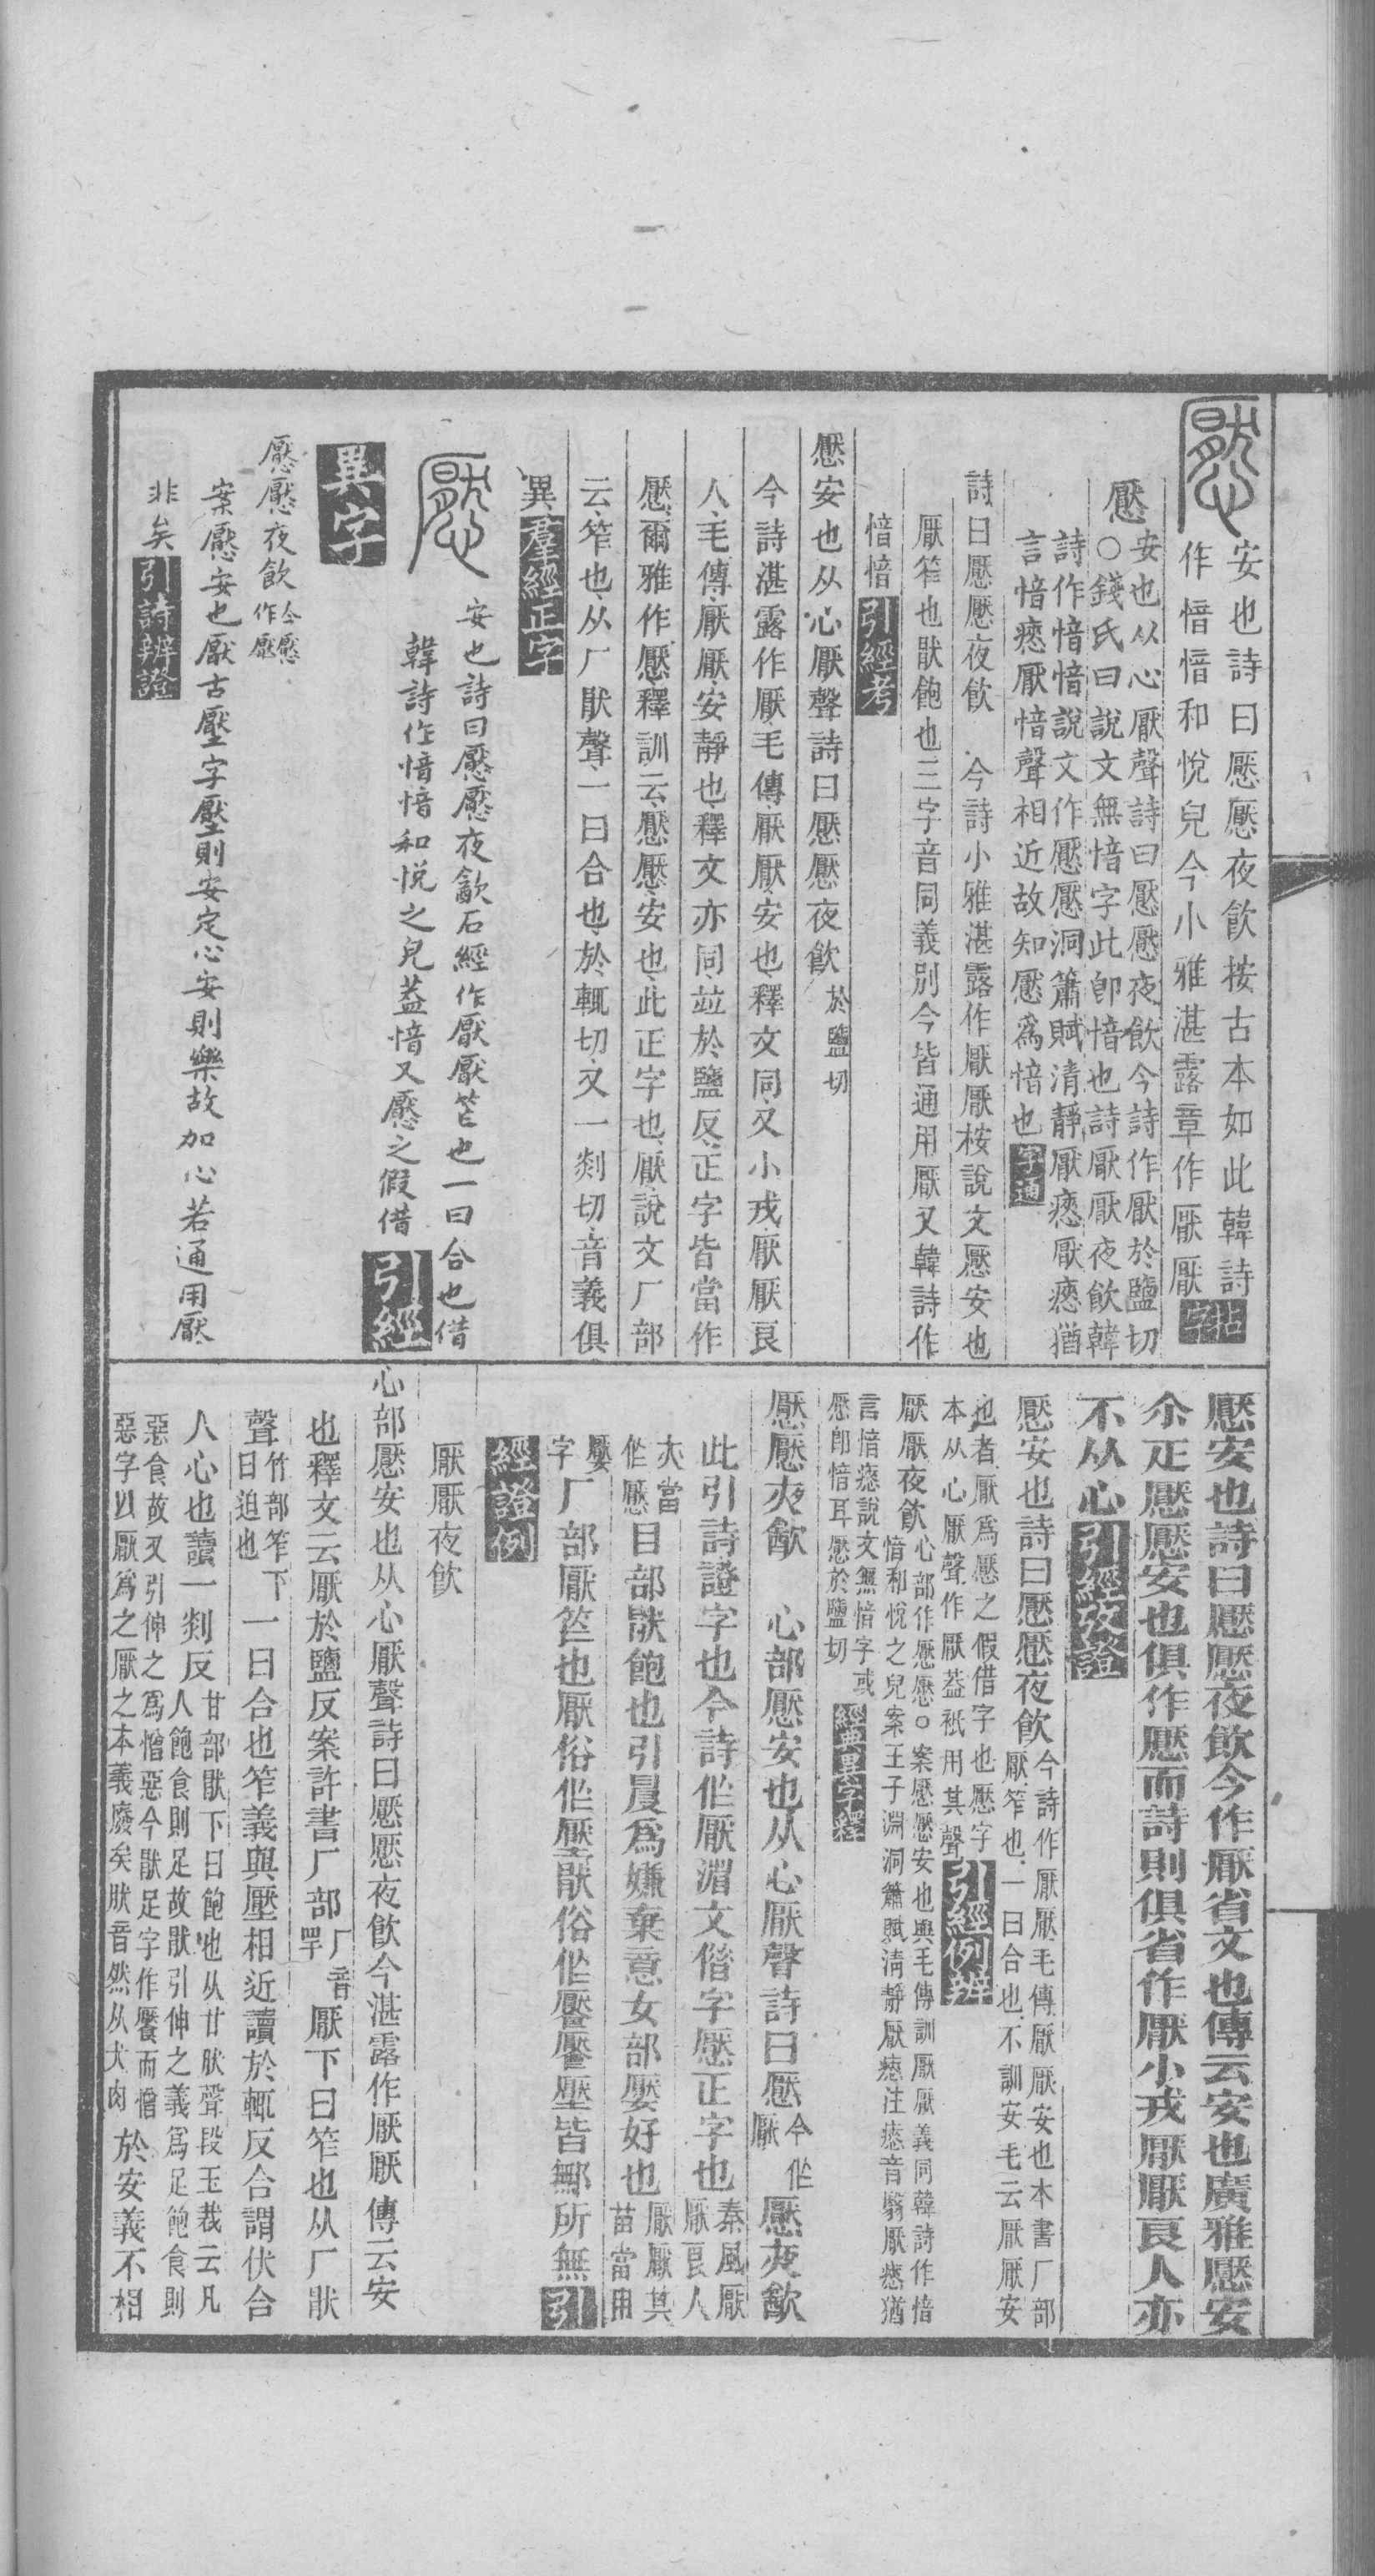 懕
安也詩曰懕懕夜飲按古本如此韓詩
作愔愔和悅皃今小雅湛露章作厭厭
古字
懕
安也从心厭聲詩曰懕懕夜飲今詩作厭於鹽切
○錢氏曰說文無愔字此卽愔也詩厭厭夜飲韓
詩作愔愔說文作懕懕洞簫賦清靜厭瘱厭瘱猶
言愔瘱厭愔聲相近故知懕為愔也
字通
詩曰懕懕夜飲 今詩小雅湛露作厭厭桉說文懕安也
厭笮也猒飽也三字音同義別今皆通用厭又韓詩作
愔愔
引經考
懕安也从心厭聲詩曰懕懕夜飲於鹽切
今詩湛露作厭毛傳厭厭安也釋文同又小戎厭厭良
人毛傳厭厭安靜也釋文亦同竝於鹽反正字皆當作
懕爾雅作懕釋訓云懕懕安也此正字也厭說文厂部
云笮也从厂猒聲一曰合也於輒切又一剡切音義俱
異
羣經正字
懕
安也詩曰懕懕夜歙石經作厭厭笮也一曰合也借
韓詩作愔愔和悅之皃葢愔又懕之假借
引經
異字
懕懕夜飲今懕作厭
案懕安也厭古壓字壓則安定心安則樂故加心若通用厭
非矣
引詩辨證
懕安也詩曰懕懕夜飲今作厭省文也傳云安也廣雅懕安
尒疋懕懕安也俱作懕而詩則俱省作厭小戎厭厭良人亦
不从心
引經攷證
懕安也詩曰懕懕夜飲
今詩作厭厭毛傳厭厭安也本書厂部
厭笮也一曰合也不訓安毛云厭厭安
也者厭為懕之假借字也懕字
本从心厭聲作厭葢衹用其聲
引經例辨
厭厭夜飲
心部作懕懕○案懕懕安也與毛傳訓厭厭義同韓詩作愔
愔和悅之皃案王子淵洞簫賦清靜厭瘱注瘱音翳厭瘱猶
言愔瘱說文無愔字或
懕卽愔耳懕於鹽切
經典異字釋
懕懕夾㱃 心部懕安也从心厭聲詩曰懕今㑅厭懕夾㱃
此引詩證字也今詩㑅厭湄文偕字懕正字也
秦風厭
厭良人
大當
㑅懕
目部猒飽也引㫳為嫌棄意女部嬮好也
厭厭其
苗當用
嬮
字
厂部厭笮也厭俗㑅壓猒俗㑅饜饜壓皆鄦所無
引
經證例
厭厭夜飲
心部懕安也从心厭聲詩曰懕懕夜飲今湛露作厭厭傳云安
也釋文云厭於鹽反案許書厂部厂音罕厭下曰笮也从厂猒
聲竹部笮下曰迫也一曰合也笮義與壓相近讀於輒反合謂伏合
人心也讀一剡反
甘部猒下曰飽也从甘肰聲段玉裁云凡
人飽食則足故猒引伸之義為足飽食則
惡食故又引伸之為憎惡今猒足字作饜而憎
惡字以厭為之厭之本義廢矣肰音然从犬肉
於安義不相